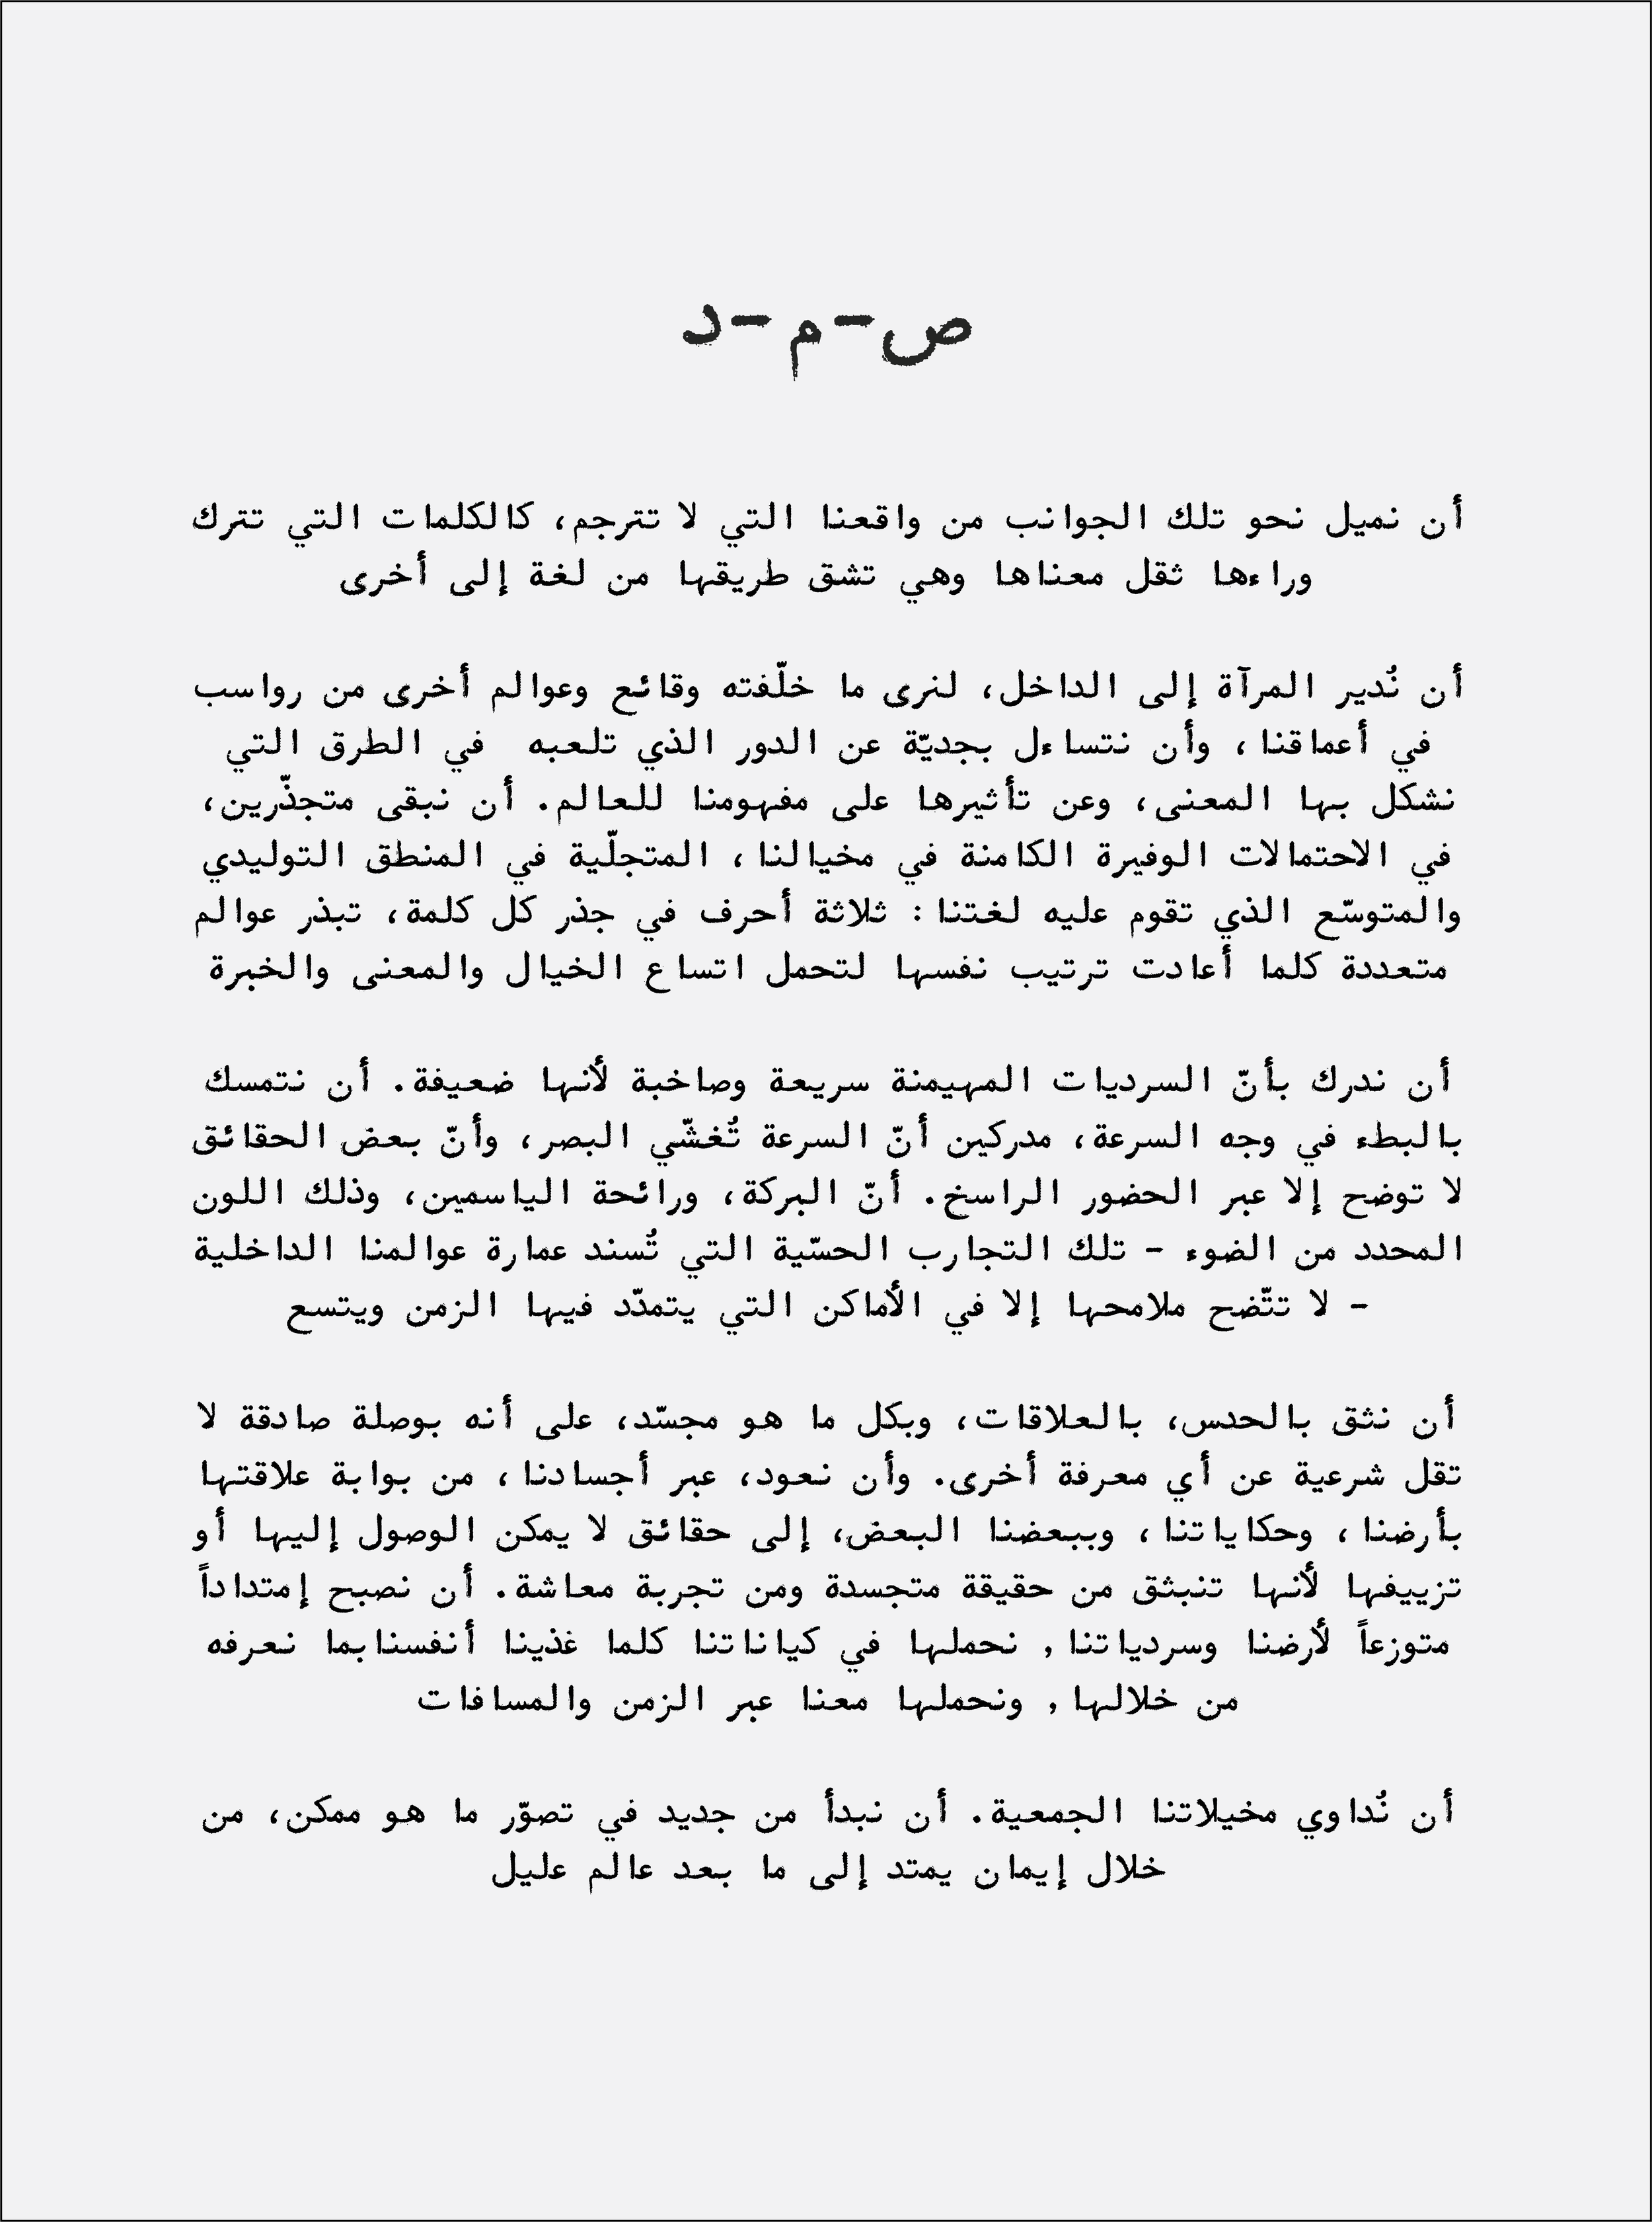 ص-م-د
أن نميل نحو تلك الجوانب من واقعنا التي لا تترجم، كالكلمات التي تترك
وراءها ثقل معناها وهي تشق طريقها من لغة إلى أخرى
أن نُدير المرآة إلى الداخل، لنرى ما خلّفته وقائع وعوالم أخرى من رواسب
في أعماقنا، وأن نتساءل بجديّة عن الدور الذي تلعبه في الطرق التي
نشكل بها المعنى، وعن تأثيرها على مفهومنا للعالم. أن نبقى متجذّرين،
في الاحتمالات الوفيرة الكامنة في مخيالنا، المتجلّية في المنطق التوليدي
والمتوسّع الذي تقوم عليه لغتنا: ثلاثة أحرف في جذر كل كلمة، تبذر عوالم
متعددة كلما أعادت ترتيب نفسها لتحمل اتساع الخيال والمعنى والخبرة
أن ندرك بأنّ السرديات المهيمنة سريعة وصاخبة لأنها ضعيفة. أن نتمسك
بالبطء في وجه السرعة، مدركين أنّ السرعة تُغشّي البصر، وأنّ بعض الحقائق
لا توضح إلا عبر الحضور الراسخ. أنّ البركة، ورائحة الياسمين، وذلك اللون
المحدد من الضوء - تلك التجارب الحسّية التي تُسند عمارة عوالمنا الداخلية
- لا تتّضح ملامحها إلا في الأماكن التي يتمدّد فيها الزمن ويتسع
أن نثق بالحدس، بالعلاقات، وبكل ما هو مجسّد، على أنه بوصلة صادقة لا
تقل شرعية عن أي معرفة أخرى. وأن نعود، عبر أجسادنا، من بوابة علاقتها
بأرضنا، وحكاياتنا، وببعضنا البعض، إلى حقائق لا يمكن الوصول إليها أو
تزييفها لأنها تنبثق من حقيقة متجسدة ومن تجربة معاشة. أن نصبح إمتداداً
متوزعاً لأرضنا وسردياتنا, نحملها في كياناتنا كلما غذينا أنفسنابما نعرفه
من خلالها, ونحملها معنا عبر الزمن والمسافات
أن نُداوي مخيلاتنا الجمعية. أن نبدأ من جديد في تصوّر ما هو ممكن، من
خلال إيمان يمتد إلى ما بعد عالم عليل